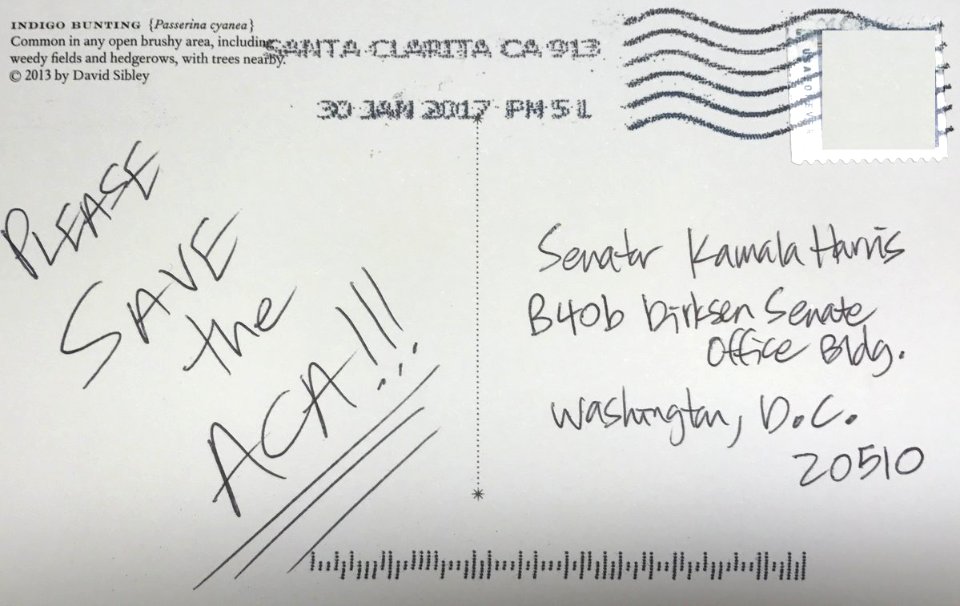 INDIGO BUNTING {Passerina cyanea}
Common in any open brushy area, including
weedy fields and hedgerows, with trees nearby.
© 2013 by David Sibley
SANTA CLARITA CA 913
30 JAN 2017 PM 5 L
PLEASE
SAVE
the
ACA!!!
Senator Kamala Harris
B40b Dirksen Senate
Office Bldg.
Washington, D.C.
20510